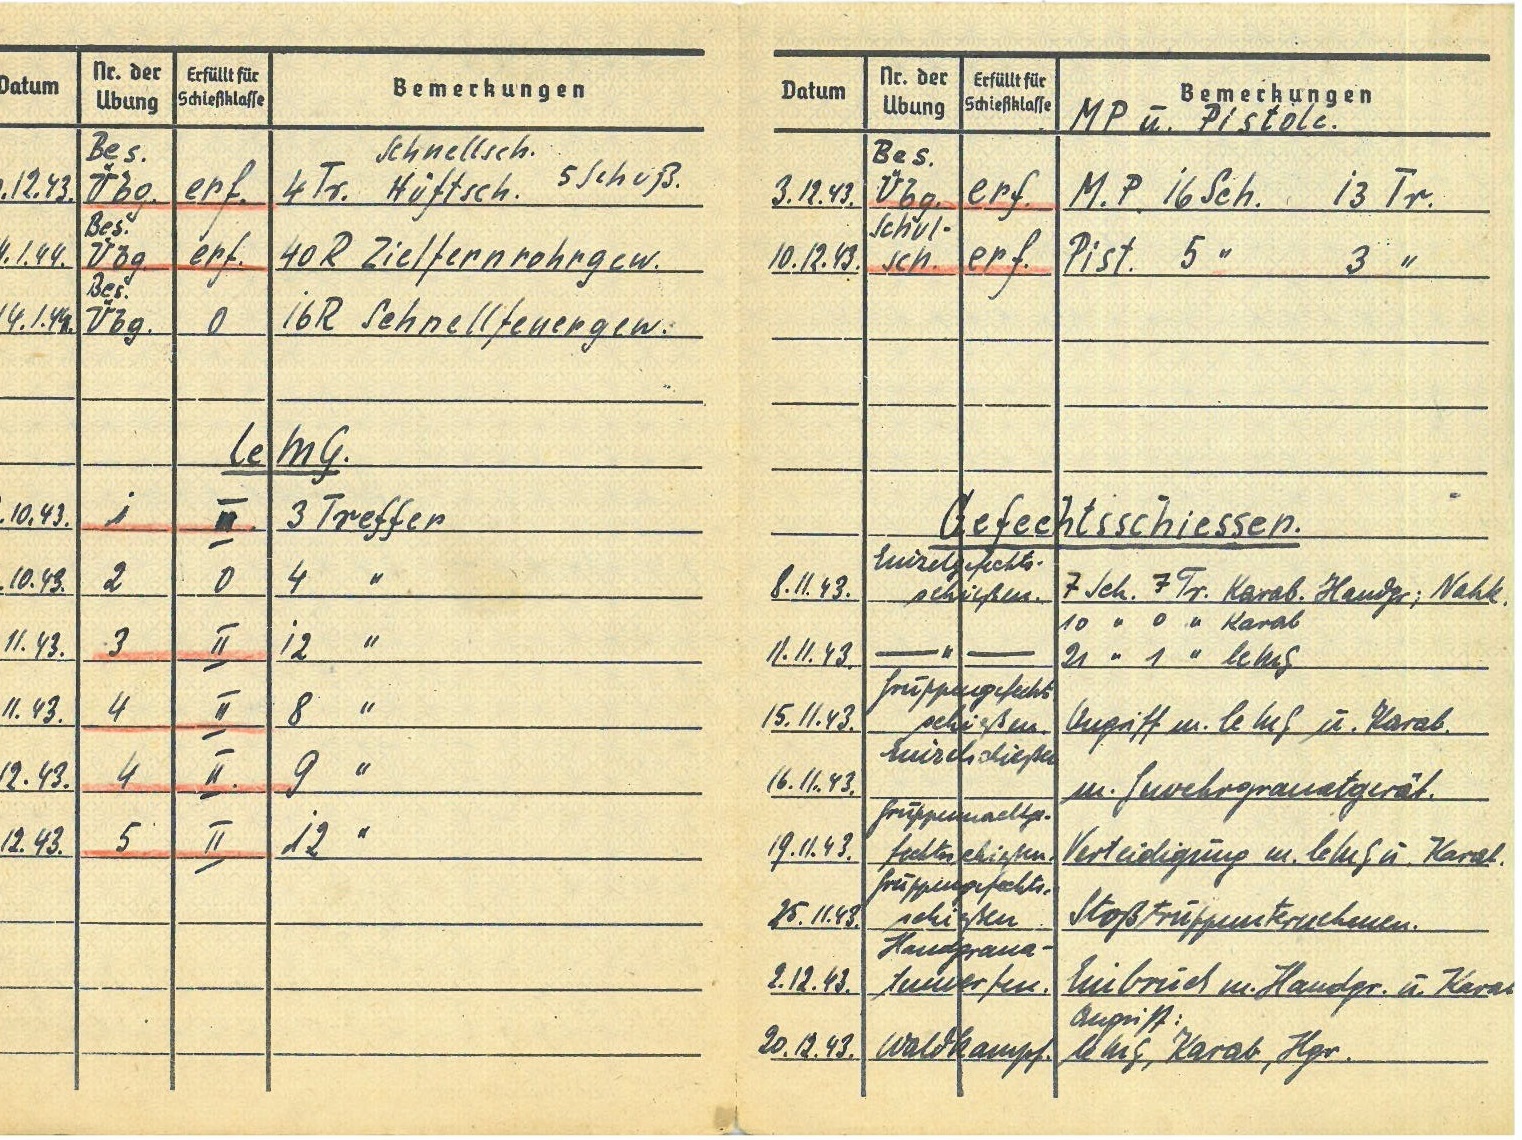 Datum Nr. der Übung Erfüllt für Schießklasse Bemerkungen
.12.43. Bes. Übg. erf. 4 Tr. Schnellsch. Hüftsch. 5 Schuß.
.1.44. Bes. Übg. erf. 40 R Zielfernrohrgew.
14.1.44. Bes. Übg. 0 16 R Schnellfeuergew.
le MG.
.10.43. 1 II. 3 Treffer
.10.43. 2 0 4 "
11.43. 3 II 12 "
11.43. 4 II 8 "
12.43. 4 II. 9 "
12.43. 5 II 12 "
Datum Nr. der Übung Erfüllt für Schießklasse Bemerkungen
MP u. Pistole.
3.12.43. Bes. Übg. erf. M.P. 16 Sch. 13 Tr.
10.12.43. Schul-
sch. erf. Pist. 5 " 3 "
Gefechtsschiessen.
8.11.43. Einzelgefechts-
schießen. 7 Sch. 7 Tr. Karab. Handgr; Nahk.
10 " 0 " Karab
11.11.43. — " — 21 " 1 " le MG
15.11.43. Gruppengefechts
schießen. Angriff m. le MG u. Karab.
16.11.43. Einzelschießen m. Gewehrgranatgerät.
19.11.43. Gruppennachtge-
fechtsschießen. Verteidigung m. le MG u. Karab.
25.11.43. Gruppengefechts-
schießen Stoßtruppunternehmen.
2.12.43. Handgrana-
tenwerfen. Einbruch m. Handgr. u. Karab
Angriff:
20.12.43. Waldkampf. le MG, Karab, Hgr.